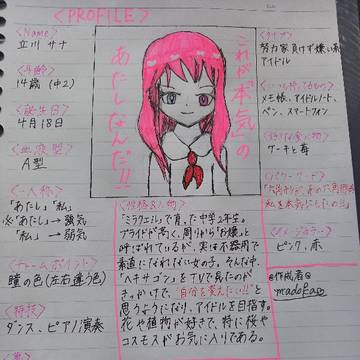 <PROFILE>
<Name>
立川 サナ
<年齢>
14歳(中2)
<誕生日>
4月18日
<血液型>
A型
<一人称>
「あたし」「私」
※「あたし」→強気
「私」→弱気
<チャームポイント>
瞳の色(左右違う色)
<特技>
ダンス、ピアノ演奏
これが「本気」の
あたしなんだ!!
<性格&人物>
「ミラクエル」で育った中学2年生。
プライドが高く、周りから「お嬢」と
呼ばれているが、実は不器用で
素直になれない女の子。そんな中、
「ヘキサゴン」をTVで見たのが
きっかけで、“自分を変えたい!!”と
思うようになり、アイドルを目指す。
花や植物が好きで、特に桜や
コスモスがお気に入りである。
<タイプ>
努力家負けず嫌い系
アイドル
メモ帳、アイドルノート、
ペン、スマートフォン
ケーキと苺
私を本気にしたの!!
<イメージカラー>
ピンク、赤
@作成者@